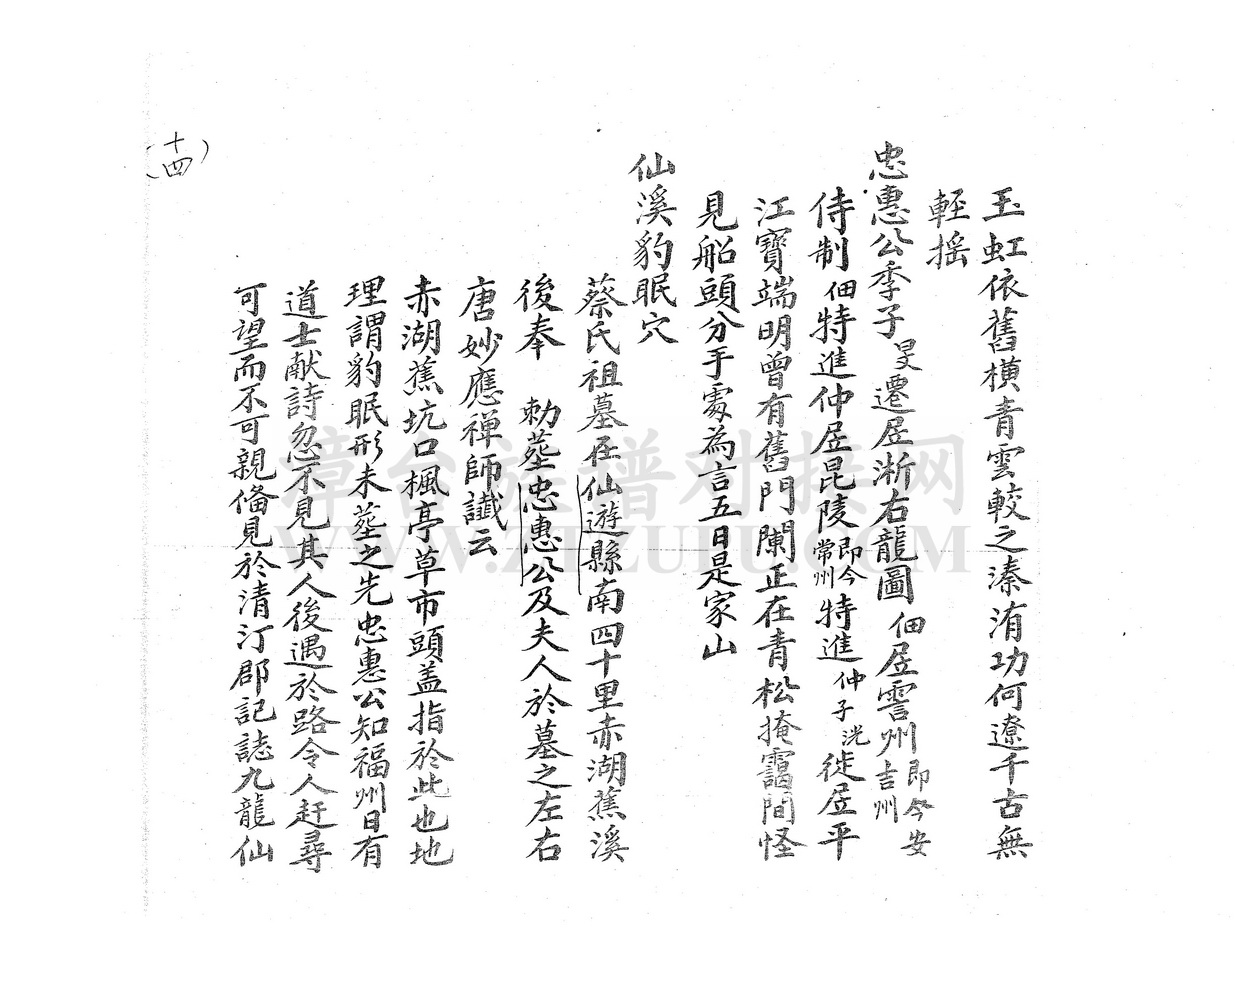 玉虹依舊橫青雲較之溱洧功何遼千古無
輕搖
忠惠公季子旻遷居淅右龍圖佃居霅州即今安吉州
待制佃特進仲居昆陵即今常州特進仲子洸徙居平
江寶端明曾有舊門闌正在青松掩靄間怪
見船頭分手處為言五日是家山
仙溪豹眠穴
蔡氏祖墓在仙遊縣南四十里赤湖蕉溪
後奉 勅塟忠惠公及夫人於墓之左右
唐妙應禪師讖云
赤湖蕉坑口楓亭草市頭盖指於此也地
理謂豹眠形未塟之先忠惠公知福州日有
道士献詩忽不見其人後遇於路令人赶尋
可望而不可親俻見於清汀郡記誌九龍仙
(十四)
漳台族谱对接网
WWW.ZTZUPU.COM